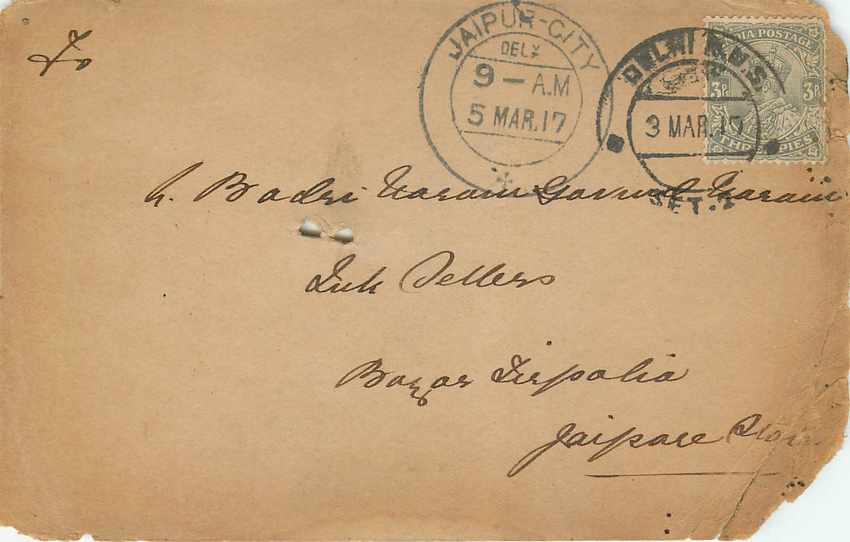 To
JAIPUR-CITY
DELY
9 - A.M
5 MAR.17
DELHI R.M.S
3 MAR.17
SET.
INDIA POSTAGE
3P 3P
THREE PIES
Badri Narain Narain
Ink Sellers
Bazar Tirpolia
Jaipore